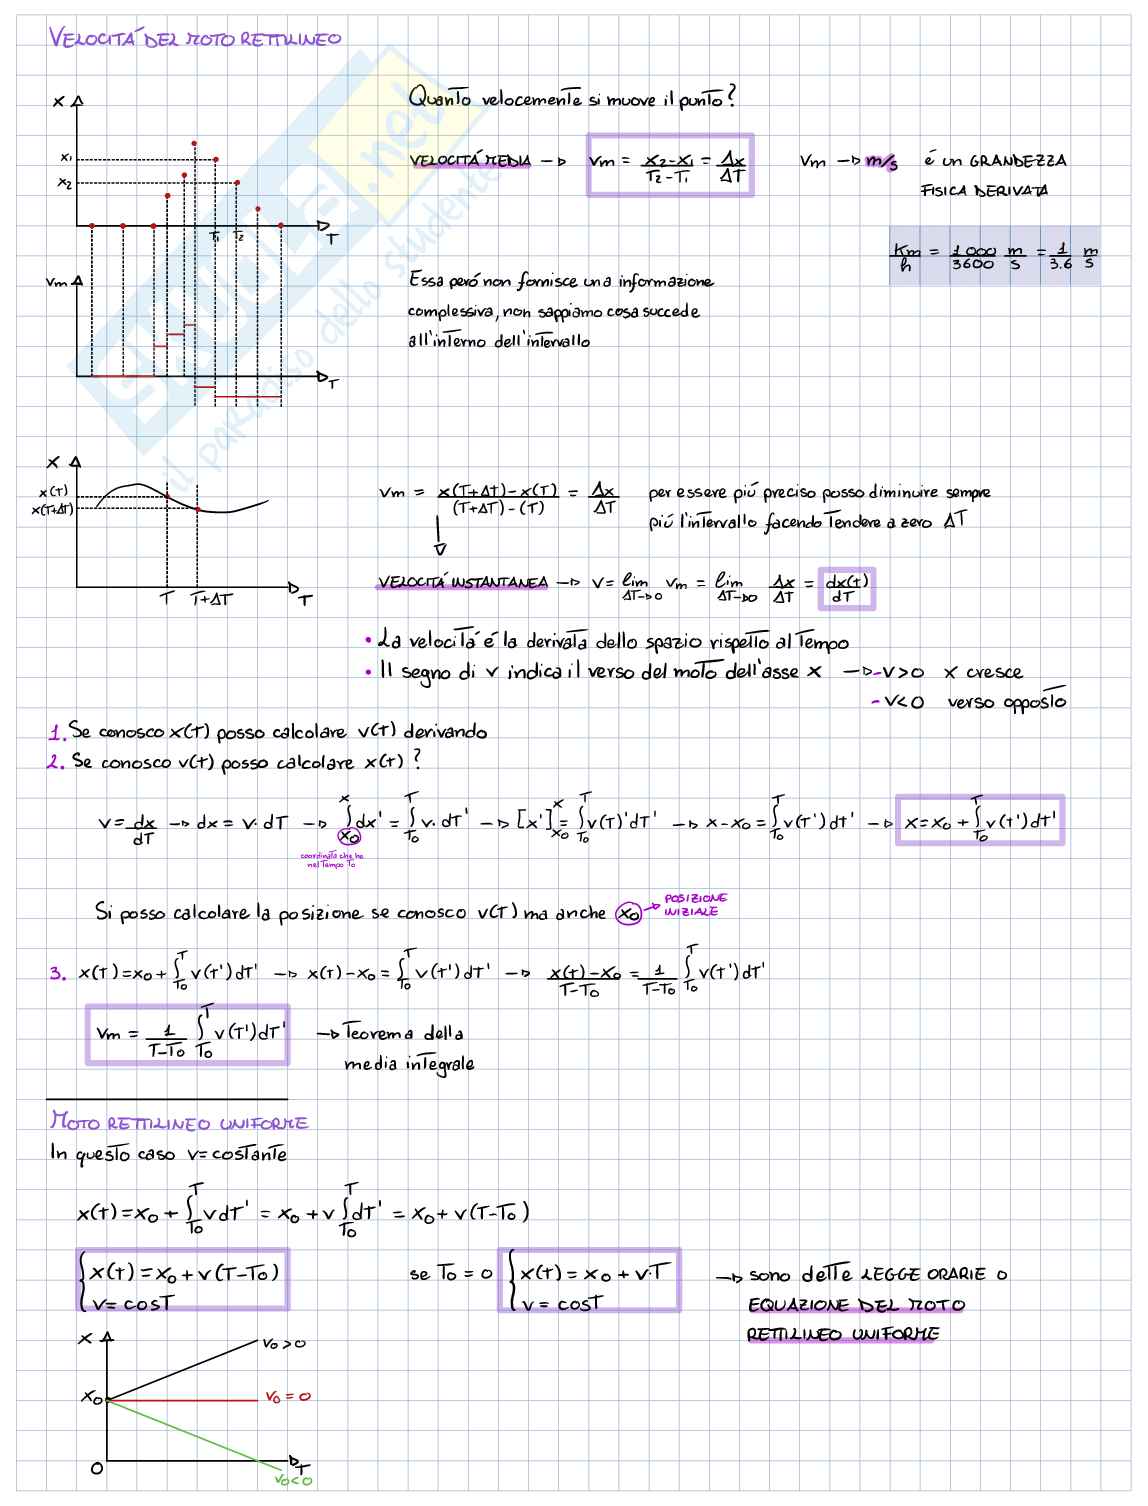 VELOCITÁ DEL MOTO RETTILINEO
Quanto velocemente si muove il punto?
VELOCITÁ MEDIA → Vm = x2-x1/T2-T1 = Δx/ΔT
Vm → m/s é un GRANDEZZA
FISICA DERIVATA
Km/h = 1000/3600 m/s = 1/3.6 m/s
x
x1
x2
T1 T2
T
Vm
T
Essa peró non fornisce una informazione
complessiva, non sappiamo cosa succede
all'interno dell'intervallo
SKUOLA.net
il paradiso dello studente
x
x(T)
x(T+ΔT)
T T+ΔT
T
Vm = x(T+Δt)-x(T)/(T+ΔT)-(T) = Δx/ΔT per essere piú preciso posso diminuire sempre
piú l'intervallo facendo tendere a zero ΔT
VELOCITÁ INSTANTANEA → V= lim ΔT→0 Vm = lim ΔT→0 Δx/ΔT = dx(t)/dT
• La velocitá é la derivata dello spazio rispetto al tempo
• Il segno di v indica il verso del moto dell'asse x → -v>0 x cresce
-v<0 verso opposto
1. Se conosco x(T) posso calcolare v(T) derivando
2. Se conosco v(T) posso calcolare x(T) ?
V= dx/dT → dx = v·dT → ∫ x0 x dx' = ∫ T0 T v·dT' → [x'] x0 x = ∫ T0 T v(T)'dT' → x-x0 = ∫ T0 T v(T')dT' → x=x0 + ∫ T0 T v(T')dT'
coordinata che ho
nel tempo T0
Si posso calcolare la posizione se conosco v(T) ma anche x0 → POSIZIONE
INIZIALE
3. x(T)=x0+ ∫ T0 T v(T')dT' → x(T)-x0 = ∫ T0 T v(T')dT' → x(T)-x0/T-T0 = 1/T-T0 ∫ T0 T v(T')dT'
Vm = 1/T-T0 ∫ T0 T v(T')dT' → Teorema della
media integrale
MOTO RETTILINEO UNIFORME
In questo caso v= costante
x(T)=x0 + ∫ T0 T v dT' = x0 + v ∫ T0 T dT' = x0 + v(T-T0)
{ x(T) = x0 + v(T-T0)
v= cosT
se T0 = 0 { x(T) = x0 + v·T
v = cosT
→ sono dette LEGGE ORARIE o
EQUAZIONE DEL MOTO
RETTILINEO UNIFORME
x
v0 > 0
x0
v0 = 0
0
T
v0 < 0